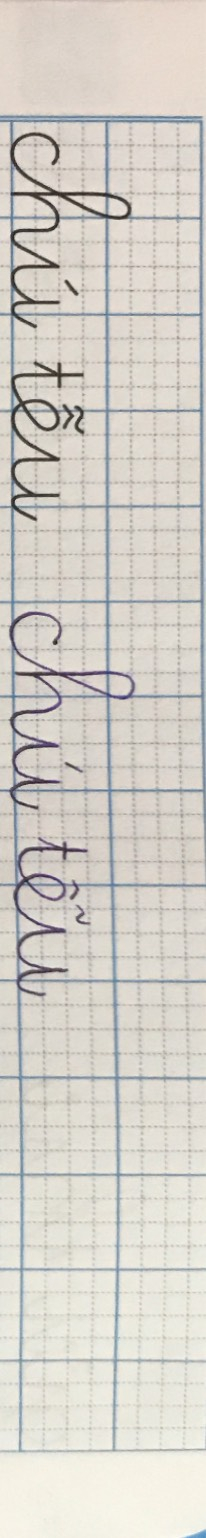 chú tễu chú tễu